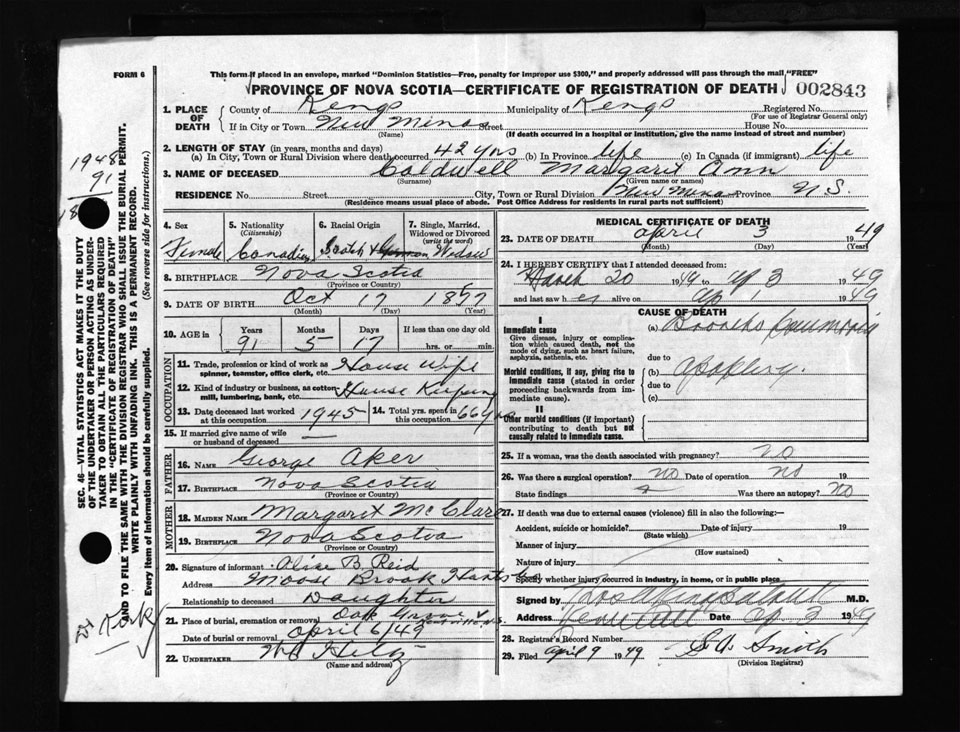 FORM 6
This form if placed in an envelope, marked "Dominion Statistics—Free, penalty for improper use $300," and properly addressed will pass through the mail "FREE"
PROVINCE OF NOVA SCOTIA—CERTIFICATE OF REGISTRATION OF DEATH 002843
1. PLACE OF DEATH County of Kings Municipality of Kings Registered No.
(For use of Registrar General only)
If in City or Town New Minas Street House No.
(Name) (If death occurred in a hospital or institution, give the name instead of street and number)
2. LENGTH OF STAY (in years, months and days)
(a) In City, Town or Rural Division where death occurred 42 yrs (b) In Province life (c) In Canada (if immigrant) life
3. NAME OF DECEASED Coldwell Margaret Ann
(Surname) (Given name or names)
RESIDENCE No. Street City, Town or Rural Division New Minas Province N S.
(Residence means usual place of abode. Post Office Address for residents in rural parts not sufficient)
4. Sex 5. Nationality (Citizenship) 6. Racial Origin 7. Single, Married, Widowed or Divorced (write the word)
Female Canadian Scotch & German Widow
8. BIRTHPLACE Nova Scotia
(Province or Country)
9. DATE OF BIRTH Oct 17 1857
(Month) (Day) (Year)
10. AGE in Years Months Days If less than one day old
91 5 17 hrs. or min.
OCCUPATION
11. Trade, profession or kind of work as spinner, teamster, office clerk, etc. House Wife
12. Kind of industry or business, as cotton mill, lumbering, bank, etc. House Keeping
13. Date deceased last worked at this occupation 1945 14. Total yrs. spent in this occupation 66 yrs
15. If married give name of wife or husband of deceased —
FATHER
16. NAME George Aker
17. BIRTHPLACE Nova Scotia
(Province or Country)
MOTHER
18. MAIDEN NAME Margaret McClare
19. BIRTHPLACE Nova Scotia
(Province or Country)
20. Signature of informant Alice B. Reid
Address Moose Brook Hants
Relationship to deceased Daughter
21. Place of burial, cremation or removal Oak
Date of burial or removal April 6/49
22. UNDERTAKER
(Name and address)
MEDICAL CERTIFICATE OF DEATH
23. DATE OF DEATH April 3 1949
(Month) (Day) (Year)
24. I HEREBY CERTIFY that I attended deceased from:
March 20 1949 to Ap 3 1949
and last saw her alive on Ap 1 1949
CAUSE OF DEATH
I
Immediate cause
Give disease, injury or complication which caused death, not the mode of dying, such as heart failure, asphyxia, asthenia, etc.
(a) Broncho pneumonia
due to
Morbid conditions, if any, giving rise to immediate cause (stated in order proceeding backwards from immediate cause).
(b) apoplexy.
due to
(c)
II
Other morbid conditions (if important) contributing to death but not causally related to immediate cause.
25. If a woman, was the death associated with pregnancy? no
26. Was there a surgical operation? no Date of operation no 19
State findings Was there an autopsy? no
27. If death was due to external causes (violence) fill in also the following:—
Accident, suicide or homicide? Date of injury 19
(State which)
Manner of injury
(How sustained)
Nature of injury
Specify whether injury occurred in industry, in home, or in public place
Signed by M.D.
Address Date Ap 3 1949
28. Registrar's Record Number
29. Filed April 9 1949 S. A. Smith
(Division Registrar)
SEC. 46—VITAL STATISTICS ACT MAKES IT THE DUTY OF THE UNDERTAKER OR PERSON ACTING AS UNDERTAKER TO OBTAIN ALL THE PARTICULARS REQUIRED IN THE "CERTIFICATE OF REGISTRATION OF DEATH" AND TO FILE THE SAME WITH THE DIVISION REGISTRAR WHO SHALL ISSUE THE BURIAL PERMIT.
WRITE PLAINLY WITH UNFADING INK. THIS IS A PERMANENT RECORD.
Every item of information should be carefully supplied. (See reverse side for instructions.)
1948
91